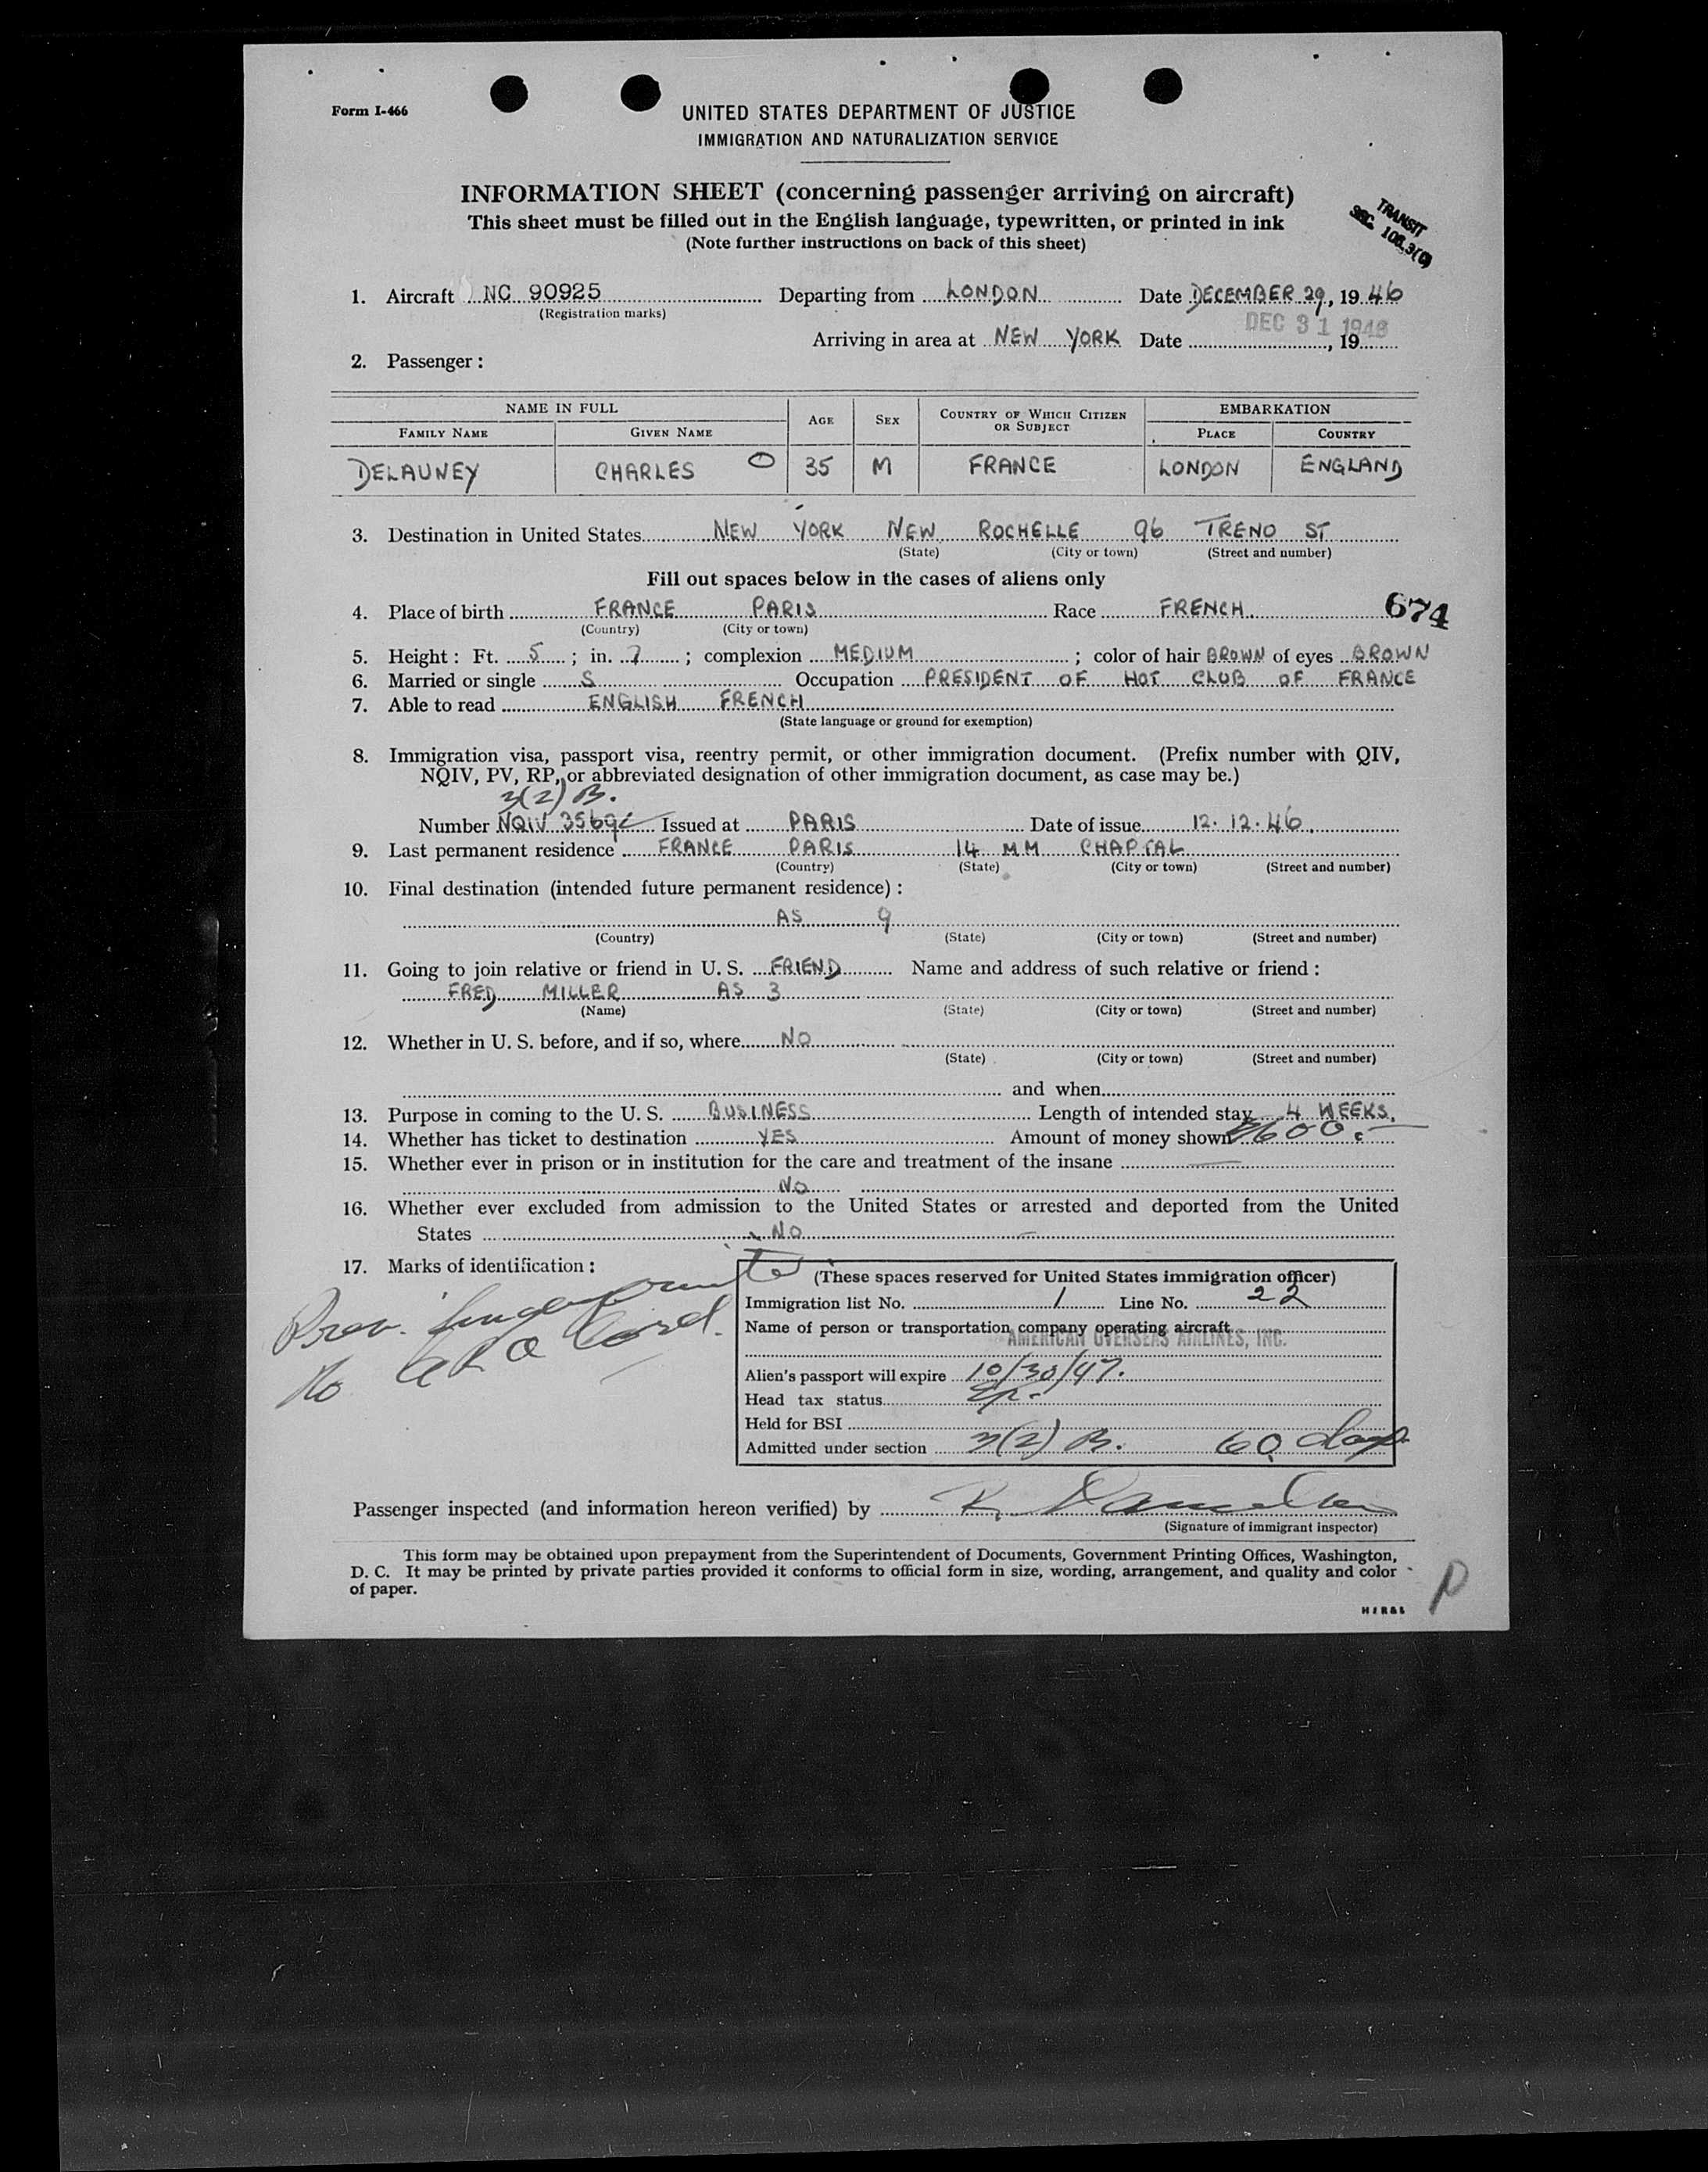 Form I-466
UNITED STATES DEPARTMENT OF JUSTICE
IMMIGRATION AND NATURALIZATION SERVICE
INFORMATION SHEET (concerning passenger arriving on aircraft)
This sheet must be filled out in the English language, typewritten, or printed in ink
(Note further instructions on back of this sheet)
TRANSIT
SEC. 108.3(C)
1. Aircraft NC 90925 Departing from LONDON Date DECEMBER 29, 1946
(Registration marks)
DEC 31 1946
Arriving in area at NEW YORK Date , 19
2. Passenger:
NAME IN FULL AGE SEX COUNTRY OF WHICH CITIZEN OR SUBJECT EMBARKATION
FAMILY NAME GIVEN NAME PLACE COUNTRY
DELAUNEY CHARLES 35 M FRANCE LONDON ENGLAND
3. Destination in United States NEW YORK NEW ROCHELLE 96 TRENO ST
(State) (City or town) (Street and number)
Fill out spaces below in the cases of aliens only
4. Place of birth FRANCE PARIS Race FRENCH. 674
(Country) (City or town)
5. Height: Ft. 5; in. 7; complexion MEDIUM; color of hair BROWN of eyes BROWN
6. Married or single S Occupation PRESIDENT OF HOT CLUB OF FRANCE
7. Able to read ENGLISH FRENCH
(State language or ground for exemption)
8. Immigration visa, passport visa, reentry permit, or other immigration document. (Prefix number with QIV,
NQIV, PV, RP, or abbreviated designation of other immigration document, as case may be.)
3(2) B.
Number NQIV Issued at PARIS Date of issue 12.12.46.
9. Last permanent residence FRANCE PARIS 14 MM CHAPTAL
(Country) (State) (City or town) (Street and number)
10. Final destination (intended future permanent residence):
AS 9
(Country) (State) (City or town) (Street and number)
11. Going to join relative or friend in U. S. FRIEND Name and address of such relative or friend:
FRED MILLER AS 3
(Name) (State) (City or town) (Street and number)
12. Whether in U. S. before, and if so, where NO
(State) (City or town) (Street and number)
and when
13. Purpose in coming to the U. S. BUSINESS Length of intended stay 4 WEEKS.
14. Whether has ticket to destination YES Amount of money shown $600.
15. Whether ever in prison or in institution for the care and treatment of the insane
NO
16. Whether ever excluded from admission to the United States or arrested and deported from the United
States NO
17. Marks of identification:
Prev. fingerprinted
No Card.
(These spaces reserved for United States immigration officer)
Immigration list No. 1 Line No. 22
Name of person or transportation company operating aircraft
AMERICAN OVERSEAS AIRLINES, INC.
Alien's passport will expire 10/30/47.
Head tax status
Held for BSI
Admitted under section 3(2) B. 60 days
Passenger inspected (and information hereon verified) by
(Signature of immigrant inspector)
This form may be obtained upon prepayment from the Superintendent of Documents, Government Printing Offices, Washington,
D. C. It may be printed by private parties provided it conforms to official form in size, wording, arrangement, and quality and color
of paper.